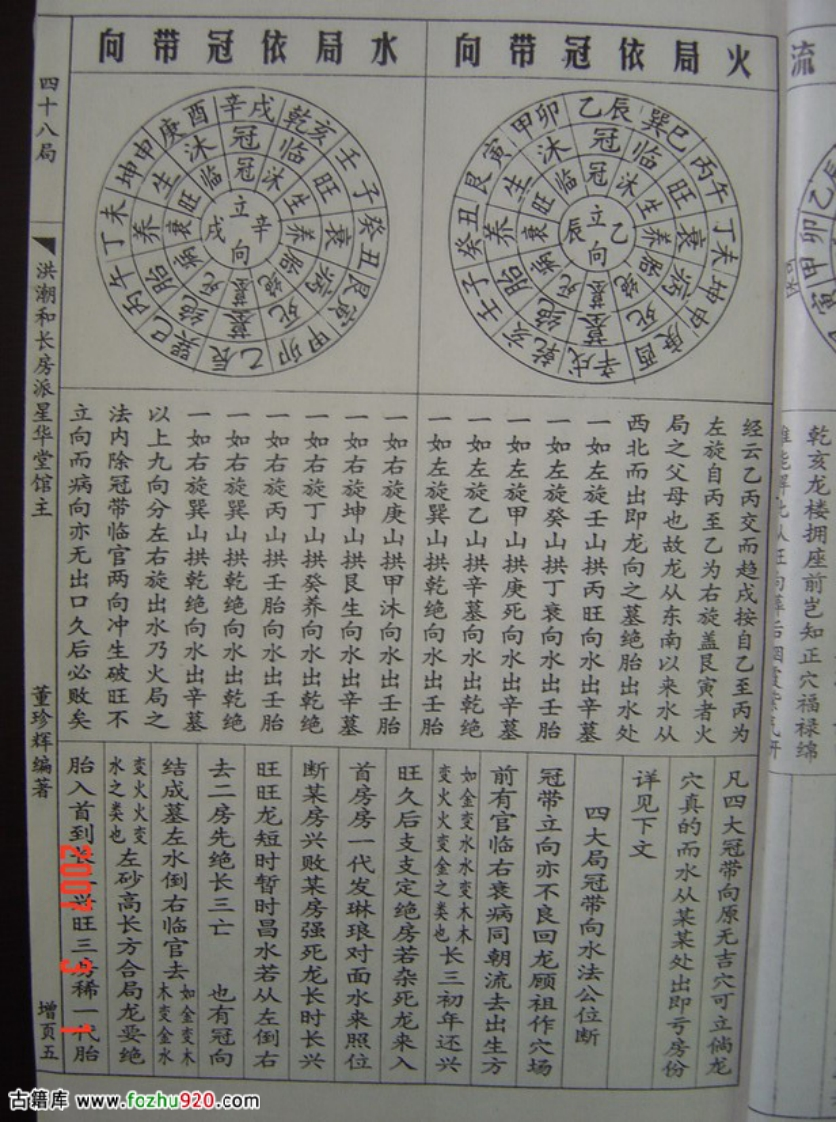 火局依冠带向
水局依冠带向
乙辰 巽巳 丙午 丁未 坤申 庚酉 辛戌 乾亥 壬子 癸丑 艮寅 甲卯
冠 临 旺 衰 病 死 墓 绝 胎 养 生 沐
冠 沐 生 养 胎 绝 墓 死 病 衰 旺 临
乙辰立向
辛戌 乾亥 壬子 癸丑 艮寅 甲卯 乙辰 巽巳 丙午 丁未 坤申 庚酉
冠 临 旺 衰 病 死 墓 绝 胎 养 生 沐
冠 沐 生 养 胎 绝 墓 死 病 衰 旺 临
辛戌立向
经云乙丙交而趋戌按自乙至丙为
左旋自丙至乙为右旋盖艮寅者火
局之父母也故龙从东南以来水从
西北而出即龙向之墓绝胎出水处
一如左旋壬山拱丙旺向水出辛墓
一如左旋癸山拱丁衰向水出辛墓
一如左旋甲山拱庚死向水出辛墓
一如左旋乙山拱辛墓向水出乾绝
一如左旋巽山拱乾绝向水出辛墓
一如右旋庚山拱甲沐向水出壬胎
一如右旋坤山拱艮生向水出壬胎
一如右旋丁山拱癸养向水出乾绝
一如右旋丙山拱壬胎向水出壬胎
一如右旋巽山拱乾绝向水出乾绝
一如右旋巽山拱乾绝向水出辛墓
以上九向分左右旋出水乃火局之
法内除冠带临官两向冲生破旺不
立向而病向亦无出口久后必败矣
凡四大冠带向原无吉穴可立倘龙
穴真的而水从某某处出即亏房份
详见下文
四大局冠带向水法公位断
冠带立向亦不良回龙顾祖作穴场
前有官临右衰病同朝流去出生方
如金变水水变木木
变火火变金之类也 长三初年还兴
旺久后支支定绝房若杂死龙来入
首房房一代发琳琅对面水来照位
断某房兴败某房强死龙长时长兴
旺旺龙短时暂时昌水若从左倒右
去二房先绝长三亡 也有冠向
结成墓左水倒右临官去 如金变木
木变金水
变火火变
水之类也 左砂高长方合局龙要绝
胎入首到 兴旺三房稀一代胎
四十八局
洪潮和长房派星华堂馆主
董珍辉编著
增页五
流
乾亥龙楼拥座前岂知正穴福禄绵
古籍库 www.fozhu920.com